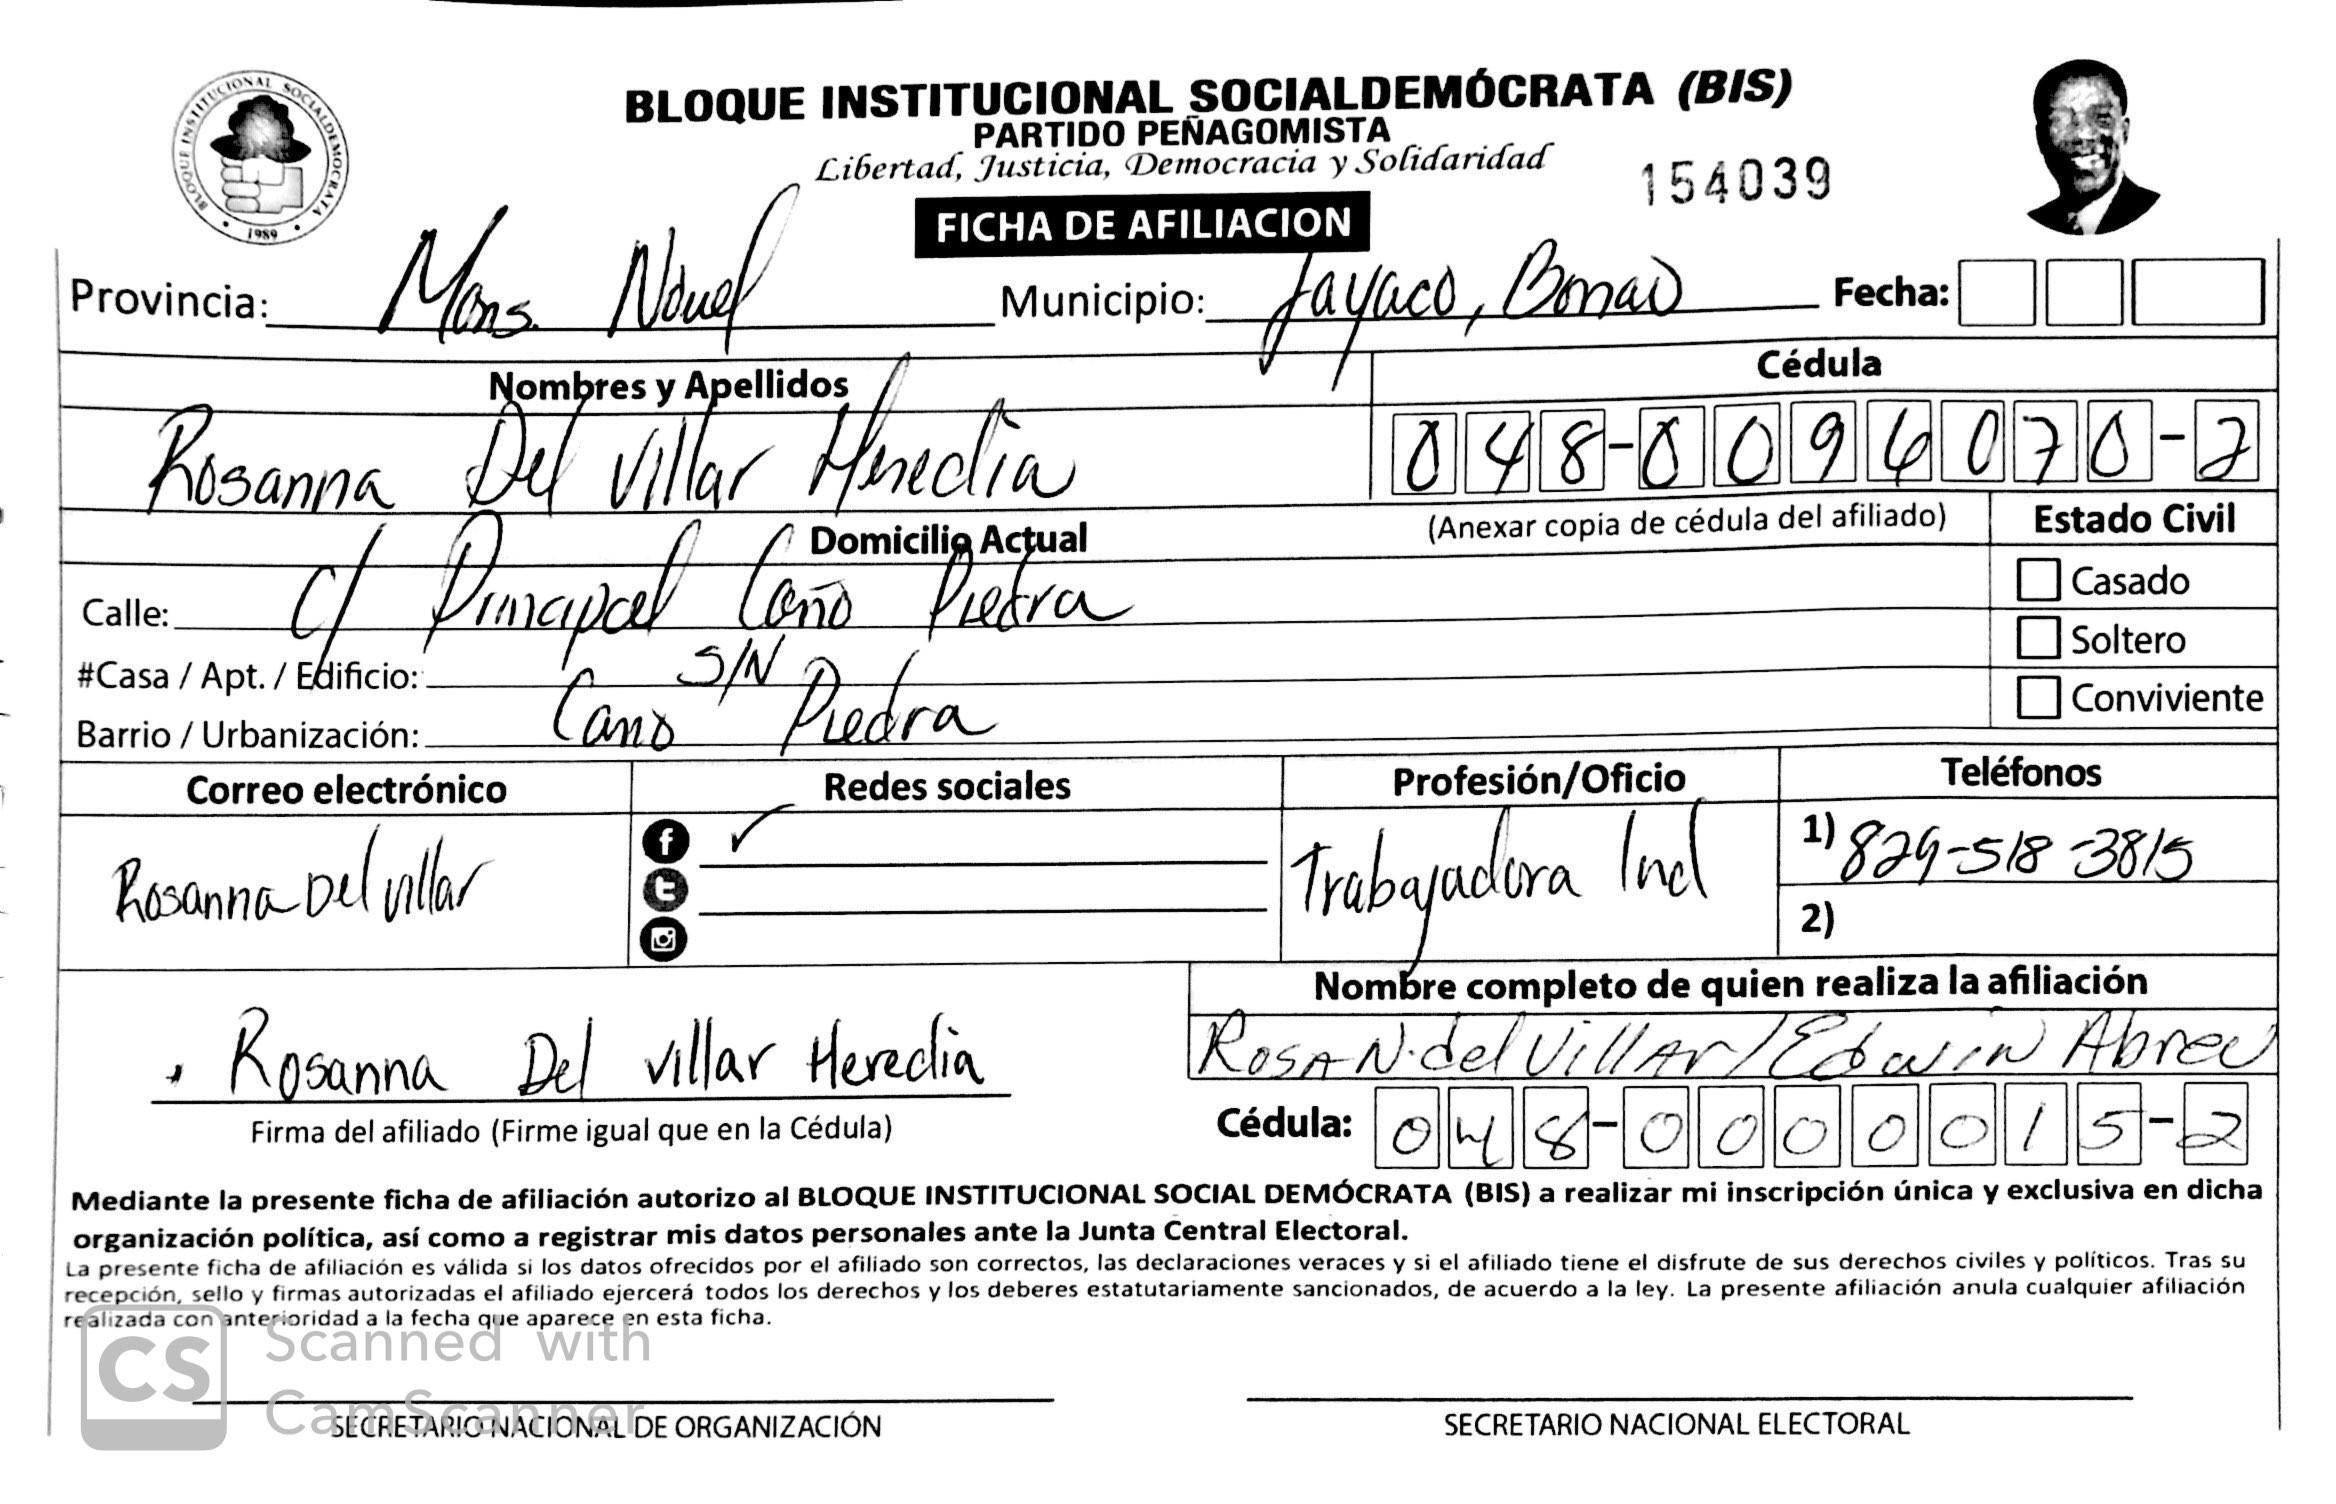 BLOQUE INSTITUCIONAL SOCIALDEMÓCRATA • 1989 •
BLOQUE INSTITUCIONAL SOCIALDEMÓCRATA (BIS)
PARTIDO PEÑAGOMISTA
Libertad, Justicia, Democracia y Solidaridad
154039
FICHA DE AFILIACION
Provincia: Mons. Nouel Municipio: Jayaco, Bonao Fecha:
Nombres y Apellidos Cédula
Rosanna Del Villar Heredia 048-0096070-2
Domicilio Actual (Anexar copia de cédula del afiliado) Estado Civil
Calle: c/ Principal Caño Piedra Casado
#Casa / Apt. / Edificio: S/N Soltero
Barrio / Urbanización: Cano Piedra Conviviente
Correo electrónico Redes sociales Profesión/Oficio Teléfonos
Rosanna Del villar ✓ Trabajadora Ind 1) 829-518-3815
2)
Nombre completo de quien realiza la afiliación
Rosanna Del villar Heredia ROSAN.del Villar/Edwin Abreu
Firma del afiliado (Firme igual que en la Cédula) Cédula: 048-0000015-2
Mediante la presente ficha de afiliación autorizo al BLOQUE INSTITUCIONAL SOCIAL DEMÓCRATA (BIS) a realizar mi inscripción única y exclusiva en dicha
organización política, así como a registrar mis datos personales ante la Junta Central Electoral.
La presente ficha de afiliación es válida si los datos ofrecidos por el afiliado son correctos, las declaraciones veraces y si el afiliado tiene el disfrute de sus derechos civiles y políticos. Tras su
recepción, sello y firmas autorizadas el afiliado ejercerá todos los derechos y los deberes estatutariamente sancionados, de acuerdo a la ley. La presente afiliación anula cualquier afiliación
realizada con anterioridad a la fecha que aparece en esta ficha.
CS Scanned with
CamScanner
SECRETARIO NACIONAL DE ORGANIZACIÓN SECRETARIO NACIONAL ELECTORAL